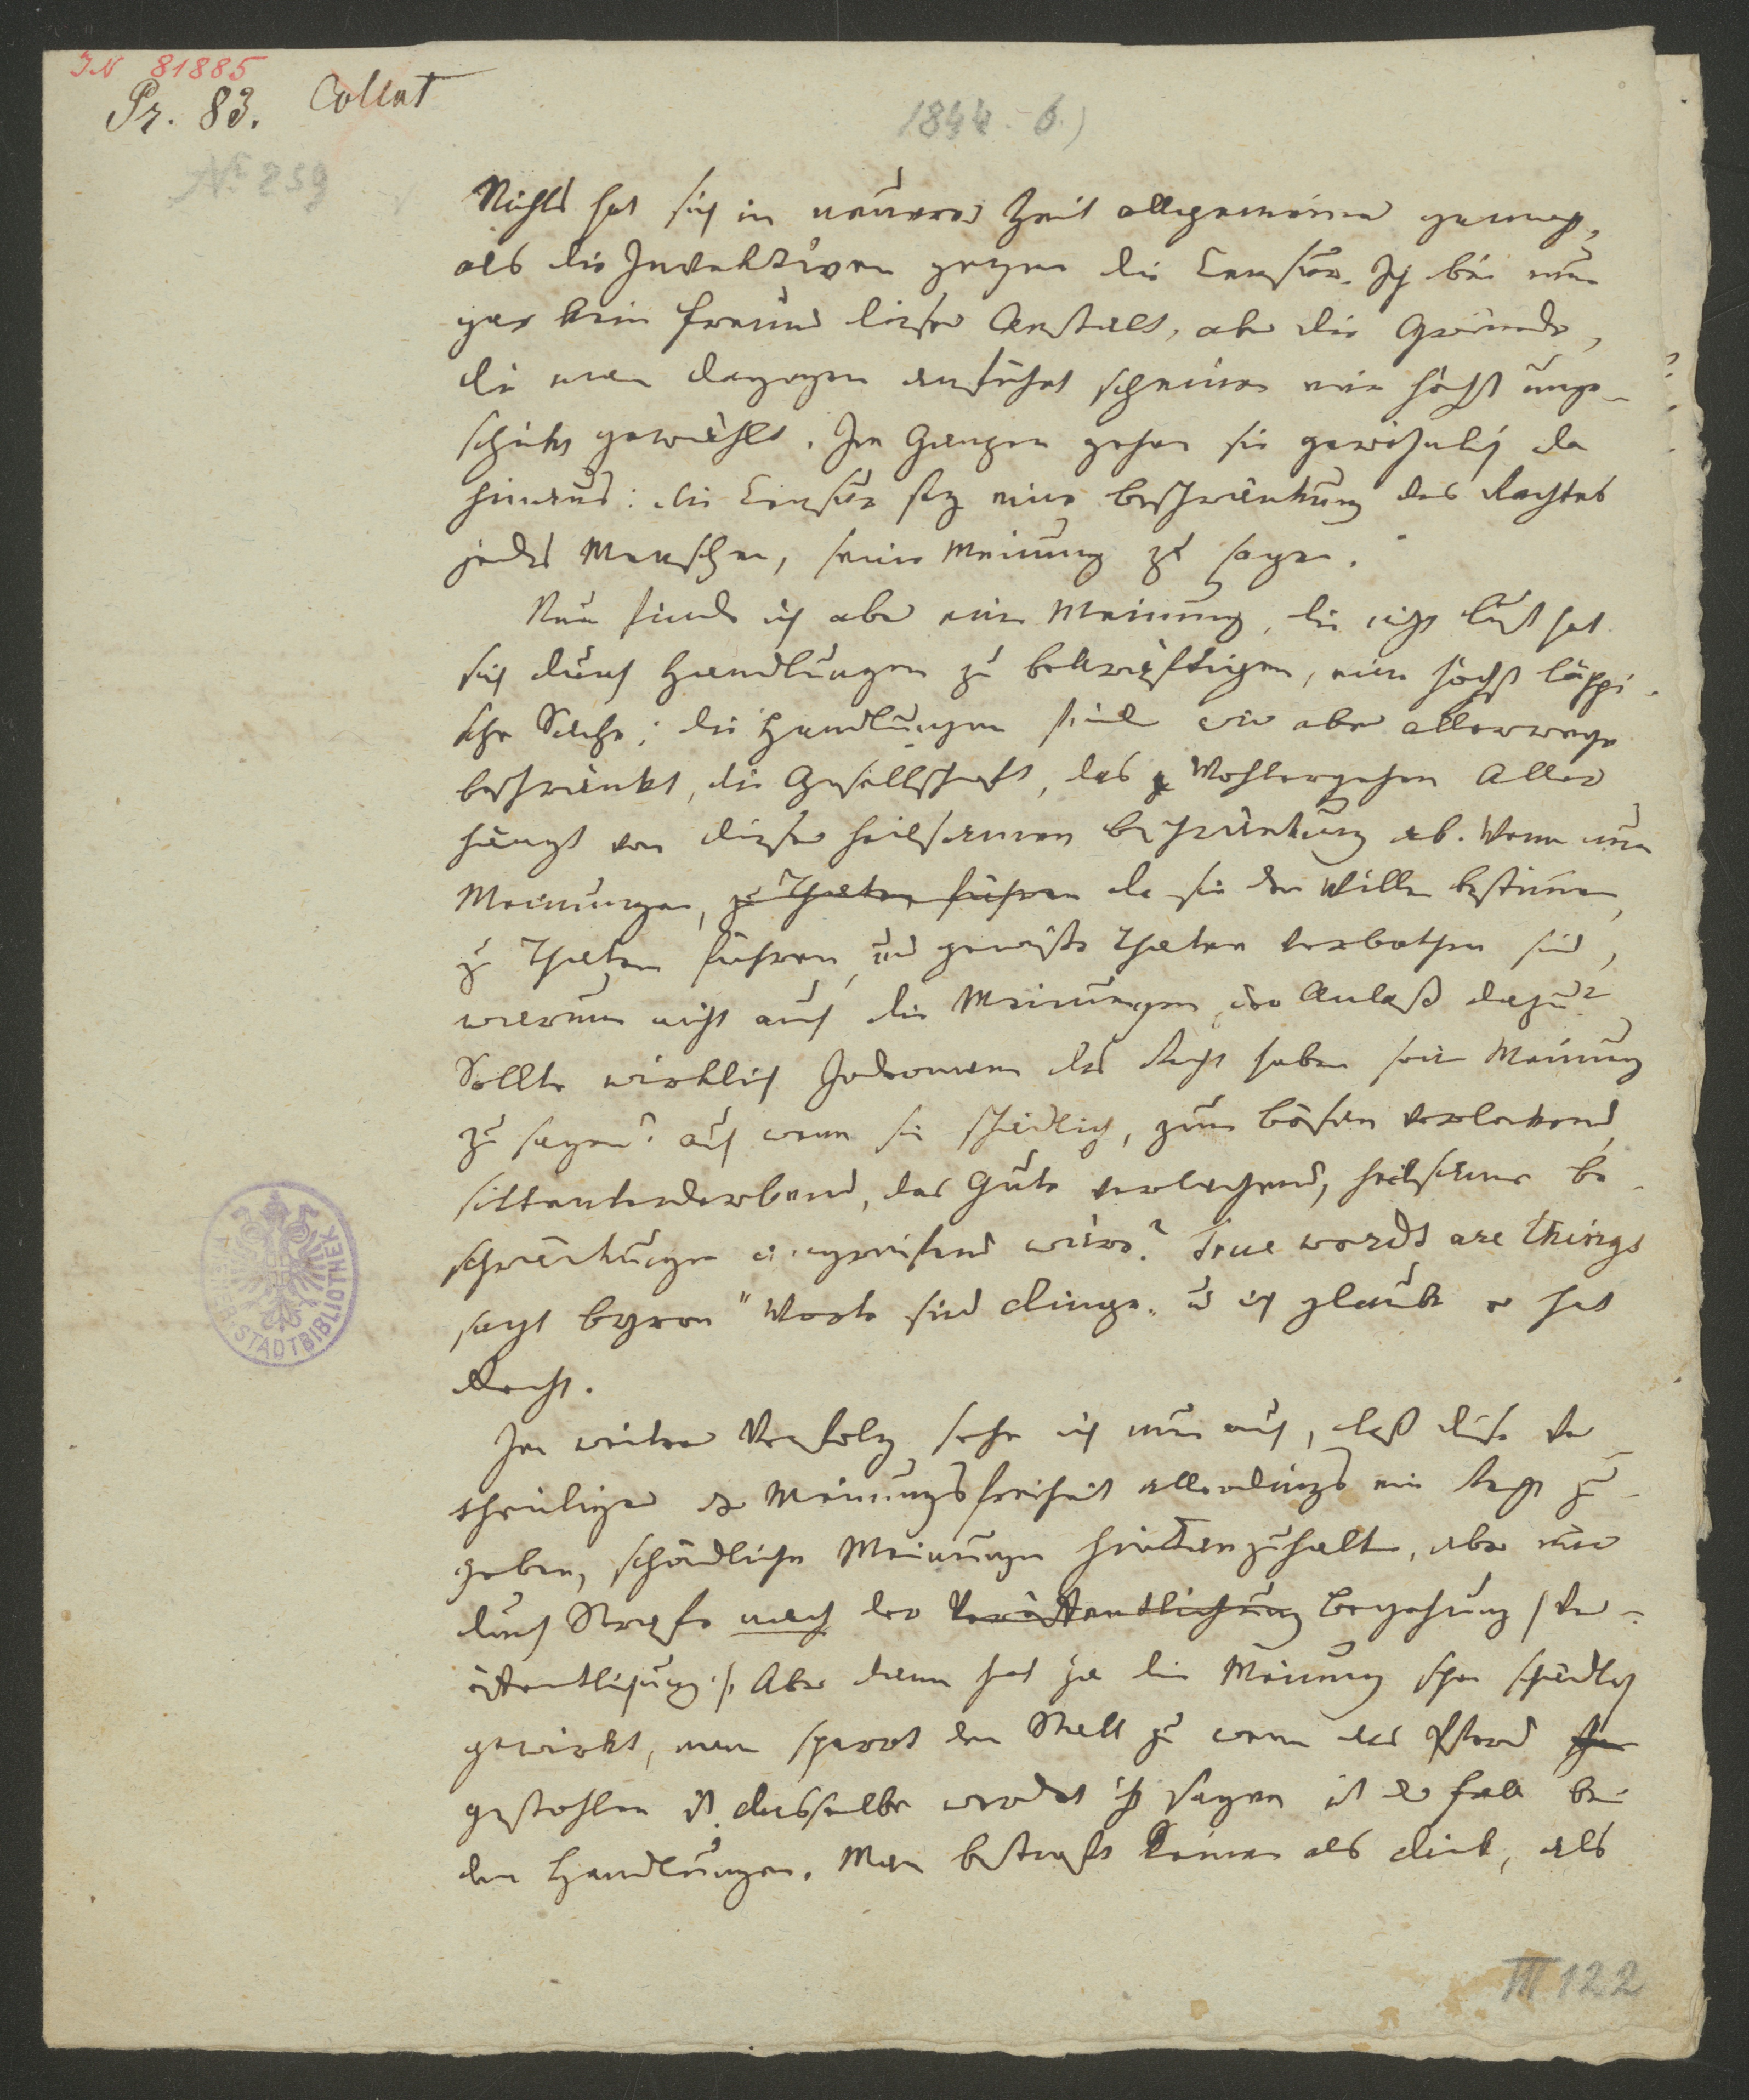 JN 81885
Pr. 83. Collat
1844. 6)
No 859
Nichts hat sich in neuerer Zeit allgemeiner gemacht,
als die Invektiven gegen die Censur. Ich bin nun
gar kein Freund dieser Anstalt, aber die Gründe,
die man dagegen anführt scheinen mir höchst unge-
schickt gewählt. Im Ganzen gehen sie gewöhnlich da
hinaus: die Censur sey eine Beschränkung des Rechtes
jedes Menschen, seine Meinung zu sagen.
Nun finde ich aber eine Meinung, die nicht Lust hat
sich durch Handlungen zu bekräftigen, eine höchst läppi-
sche Sache; die Handlungen sind wir aber allerwege
beschränkt, die Gesellschaft, das Wohlergehen Aller
hängt von dieser heilsamen Beschränkung ab. Wenn nun
Meinungen, zu Thaten führen da sie den Willen bestimen,
zu Thaten führen, und gewisse Thaten verbothen sind,
warum nicht auch die Meinungen, der Anlaß dazu?
Sollte wirklich Jedermann das Recht haben seine Meinung
zu sagen? auch wenn sie schädlich, zum Bösen verlockend,
sittenverderbend, das Gute verlachend, heilsame Be-
schränkungen angreifend wäre? True words are things
sagt Byron "Worte sind Dinge" u ich glaube er hat
Recht.
Im weitern Verfolg sehe ich nun auch, daß diese Ver-
theidiger der Meinungsfreiheit allerdings ein Recht zu-
geben, schädliche Meinungen hintanzuhalten, aber nur
durch Strafe nach der Veröffentlichung Begehung /: Ver-
öffentlichung :/. Aber dann hat ja die Meinung schon schädlich
gewirkt, man sperrt den Stall zu wenn das Pferd schon
gestohlen ist. dasselbe werdet ihr sagen ist der Fall bei
den Handlungen. Man bestraft Keinen als Dieb, als
WIENER STADTBIBLIOTHEK
III 122